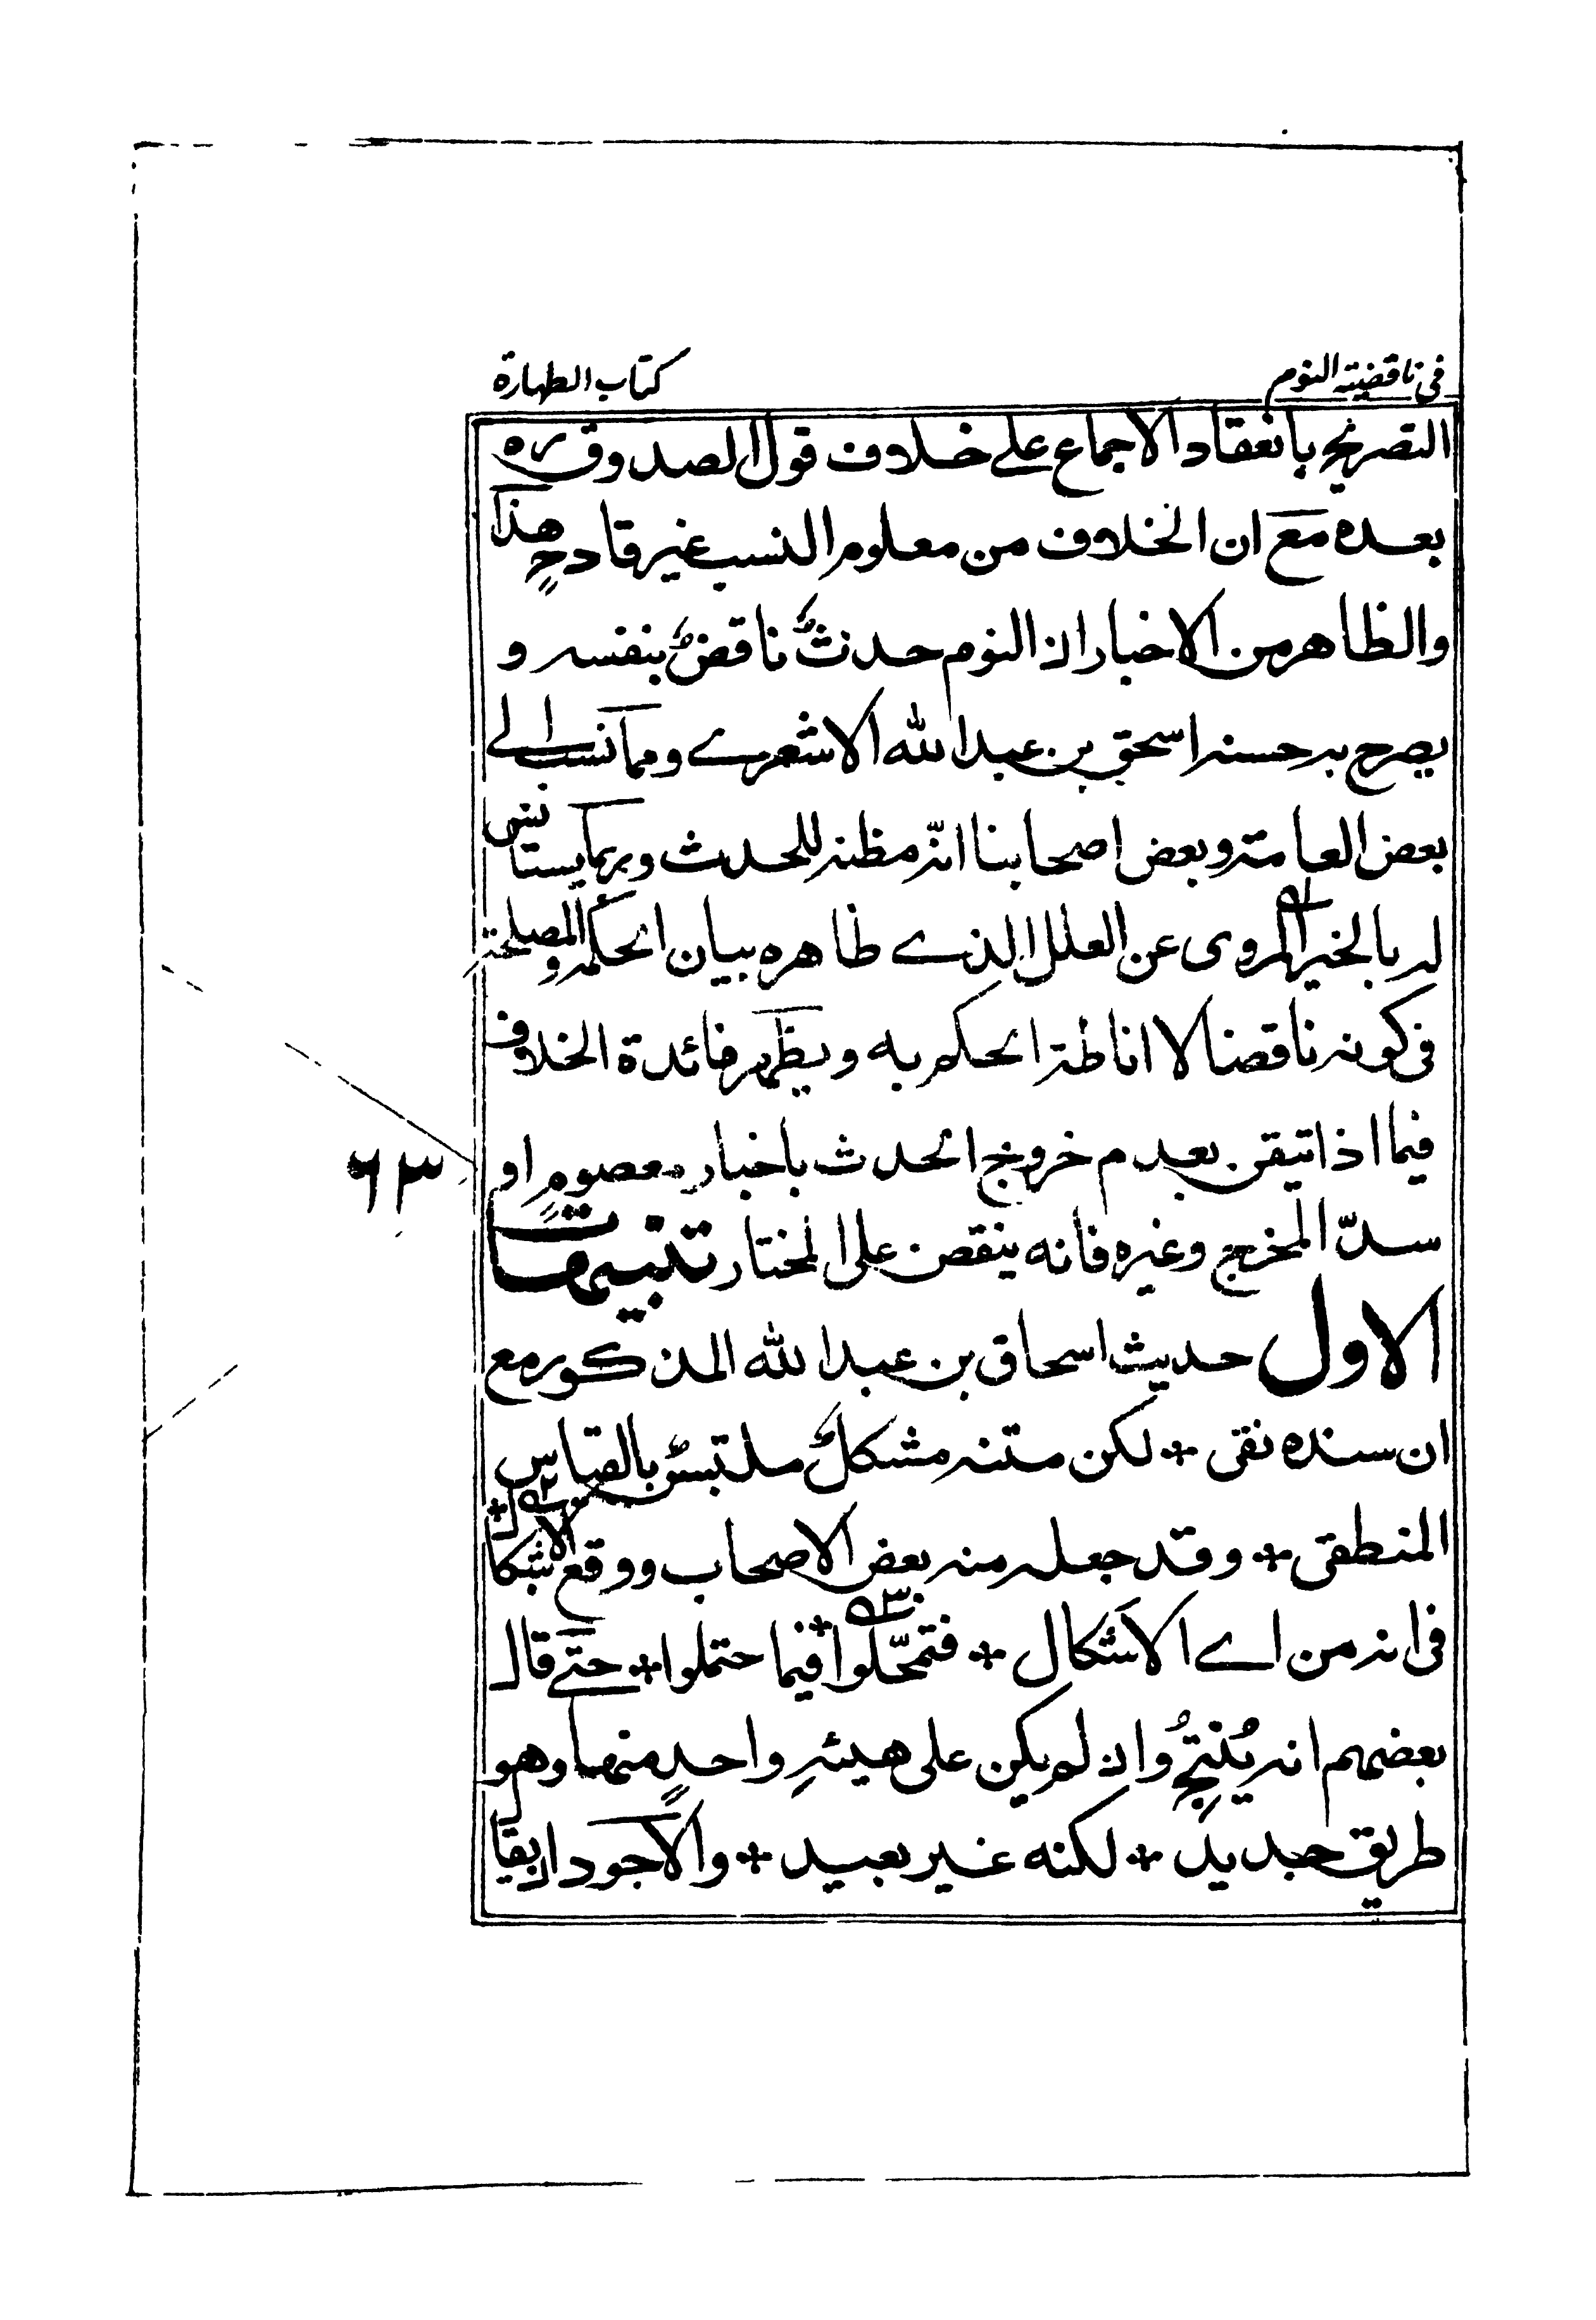 في ناقضية النوم
كتاب الطهارة
التصريح بانعقاد الاجماع على خلاف قول الصدوق ره
بعده مع ان الخلاف من معلوم النسب غير قادحٍ هذا
والظاهر من الاخبار ان النوم حدثٌ ناقضٌ بنفسه و
يصرح به حسنه اسحق بن عبد الله الاشعري ومما نسب الى
بعض العامة وبعض اصحابنا انّه مظنه للحدث وربما يستانس
له بالخبر المروى عن العلل الذي ظاهره بيان الحكمه والمصلحة
في كونه ناقضا لا اناطة الحكم به ويظهر فائدة الخلاف
فيما اذا تيقن بعدم خروج الحدث باخبار معصومٍ او
سدّ المخرج وغيره فانه ينقض على المختار تنبيهات
الاول حديث اسحاق بن عبد الله المذكور مع
ان سنده نقى * لكن متنه مشكلٌ ملتبسٌ بالقياس
المنطقى * وقد جعله منه بعض الاصحاب ووقع الاشكال *
في انه من اي الاَشكال * فتمحّلوا * فيما احتملوا * حتى قال
بعضهم انه يُنتِجُ وان لم يكن على هيئةِ واحدٍ منها وهو
طريق جديد * لكنه غير بعيد * والاجود ابقا
٦٣